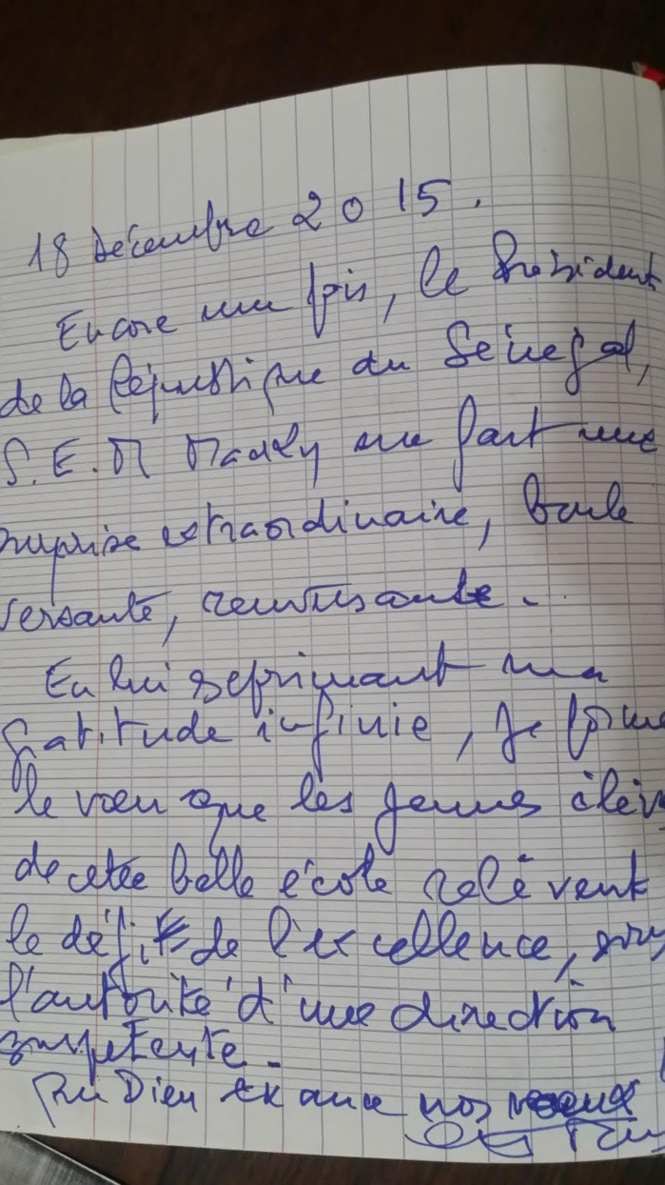 18 Décembre 2015.
Encore une fois, le Président
de la République du Sénégal,
S.E.M Macky me fait une
surprise extraordinaire, boule
versante,
En lui exprimant ma
gratitude infinie, je forme
le vœu que les jeunes élèves
de cette belle école relèvent
le défi de l'excellence, sous
l'autorité d'une direction
compétente.
Que Dieu exauce nos vœux